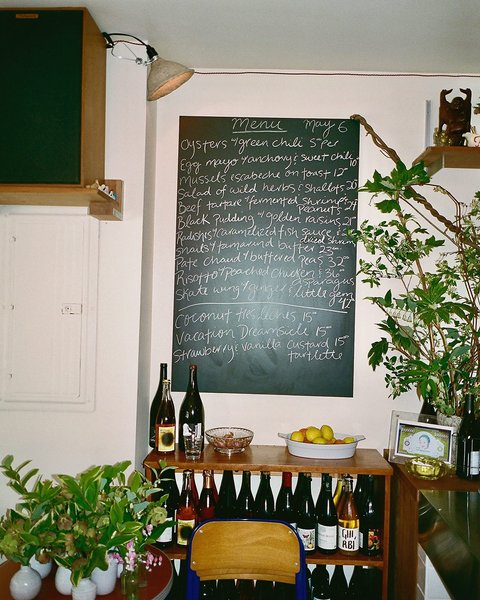 Menu May 6
Oysters w/ green chili 5⁻ per
Egg mayo w/ anchovy & sweet chili 10⁻
Mussels escabeche on toast 12⁻
Salad of wild herbs & shallots 20⁻
Beef tartare w/ fermented shrimp & 24⁻
Peanuts
Black Pudding w/ golden raisins 21⁻
Radishes w/ caramelized fish sauce &
dried shrimp
Snails w/ tamarind butter 23⁻
Pate Chaud w/ buttered Peas 32⁻
Risotto w/ Poached Chicken & 36⁻
asparagus
Skate wing w/ ginger & little gem
42
Coconut tres leches 15⁻
Vacation Dreamsicle 15⁻
Strawberry & vanilla custard 15⁻
tartlette
GLU
ABI